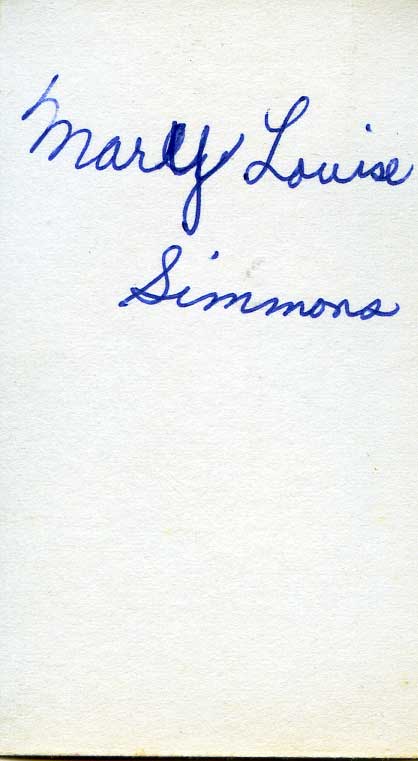 Mary Louise
Simmons